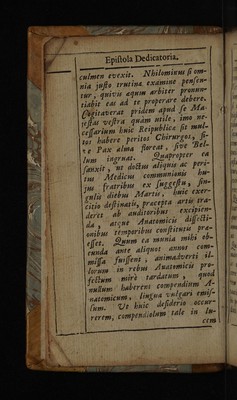 Epistola Dedicatoria,
culmen evexit. Nhilominus si om-
nia justo trutina examine pensen-
tur, quivis æquus arbiter pronun-
tiabit eas ad te properare debere.
Cogitaverat pridem apud se Ma-
jestas vestra quàm utile, imo ne-
cessarium huic Reipublicæ sit mul-
tos habere peritos Chirurgos, si-
ve Pax alma floreat, sive Bel-
lum ingruat. Quapropter ea
sanxit, ut doctus aliquis ac peri-
tus Medicus communionis hu-
jus fratribus ex suggestu, sin-
gulis diebus Martis, huic exer-
citio destinatis, præcepta artis tra-
deret ab auditoribus excipien-
da, atque Anatomicis dissecti-
onibus temporibus constitutis præ-
esset. Quum ea munia mihi ob-
eunda ante aliquot annos com-
missa fuissent, animadverti il-
lorum in rebus Anatomicis pro-
fectum mirè tardatum, quod
nullum haberent compendium A-
natomicum, lingua vulgari emis-
sum. Ut huic desiderio occur-
rerem, compendiolum tale in lu-
cem